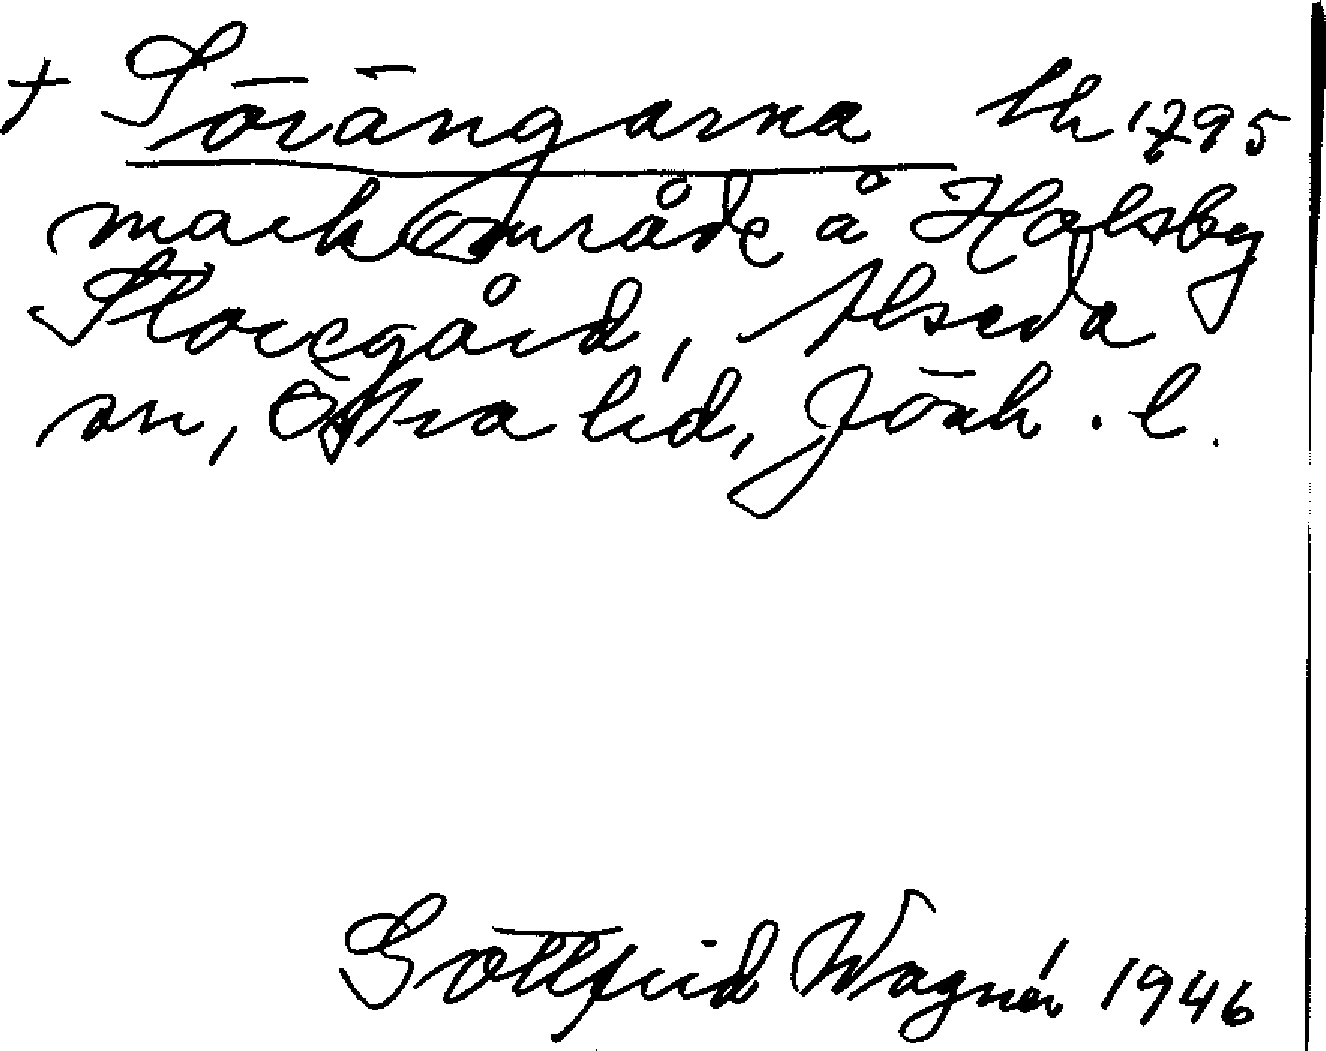 + Sörängarna lh 1795
markområde å Holsby
Storegård, Alseda
sn, Östra hd, Jönk. l.
Gottfrid Wagnér 1946